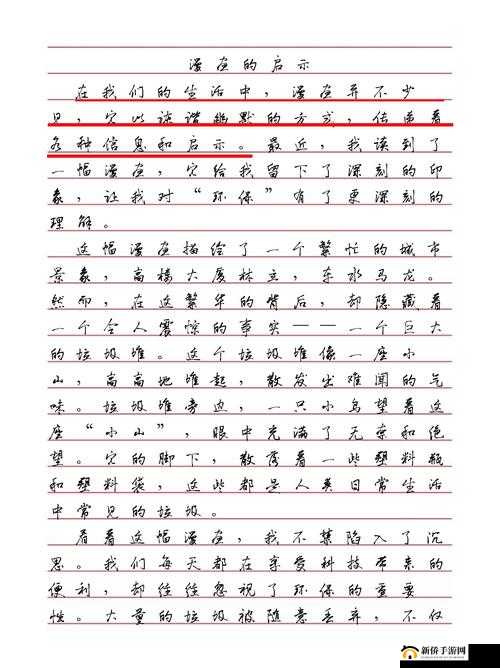 漫画的启示
在我们的生活中，漫画并不少
见，它以诙谐幽默的方式，传递着
各种信息和启示。最近，我读到了
一幅漫画，它给我留下了深刻的印
象，让我对“环保”有了更深刻的
理解。
这幅漫画描绘了一个繁忙的城市
景象，高楼大厦林立，车水马龙。
然而，在这繁华的背后，却隐藏着
一个令人震惊的事实——一个巨大
的垃圾堆。这个垃圾堆像一座小
山，高高地堆起，散发出难闻的气
味。垃圾堆旁边，一只小鸟望着这
座“小山”，眼中充满了无奈和绝
望。它的脚下，散落着一些塑料瓶
和塑料袋，这些都是人类日常生活
中常见的垃圾。
看着这幅漫画，我不禁陷入了沉
思。我们每天都在享受科技带来的
便利，却往往忽视了环保的重要
性。大量的垃圾被随意丢弃，不仅
新侨手游网